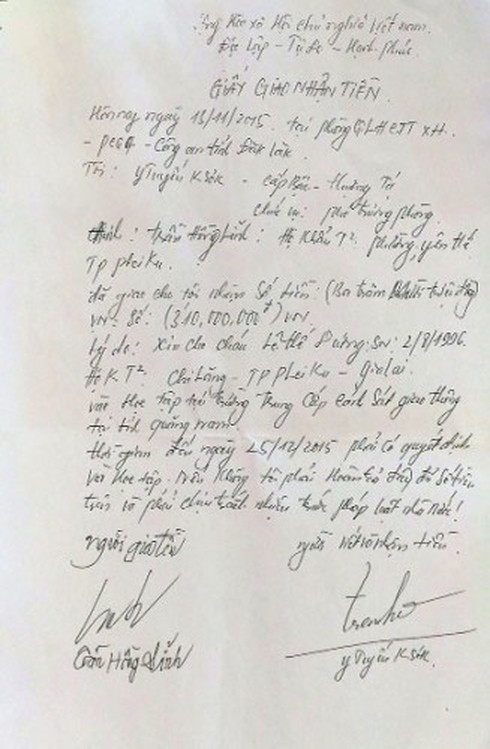 Cộng hòa xã hội chủ nghĩa Việt nam.
Độc lập - Tự do - Hạnh phúc.
GIẤY GIAO NHẬN TIỀN.
Hôm nay ngày 13/11/2015. tại phòng QLHC TT XH.
- PC64 - Công an tỉnh Đăk Lăk.
Tôi: Y Tuyến KSơk - cấp Bậc - Thượng Tá
chức vụ: phó trưởng phòng.
Anh: Trần Hồng Lĩnh: Hộ Khẩu T2. phường yên thế
TP pleiKu.
đã giao cho tôi nhận số tiền: (Ba trăm Mười triệu đồng)
VN. Số: (310,000,000đ) VN.
Lý do: Xin cho cháu Lê Thế Dương: SN: 2/8/1996.
HoK T2. Chi Lăng - TP pleiKu - Gia Lai.
vào học tập tại trường Trung Cấp Cảnh Sát giao thông
tại tỉnh quảng nam.
thời gian đến ngày 25/12/2015 phải có quyết định
vào học tập. Nếu không tôi phải hoàn trả đầy đủ số tiền
trên và phải chịu trách nhiệm trước pháp luật nhà nước!
người giao tiền
người viết và nhận tiền.
Trần Hồng Lĩnh
Y Tuyến KSơk.